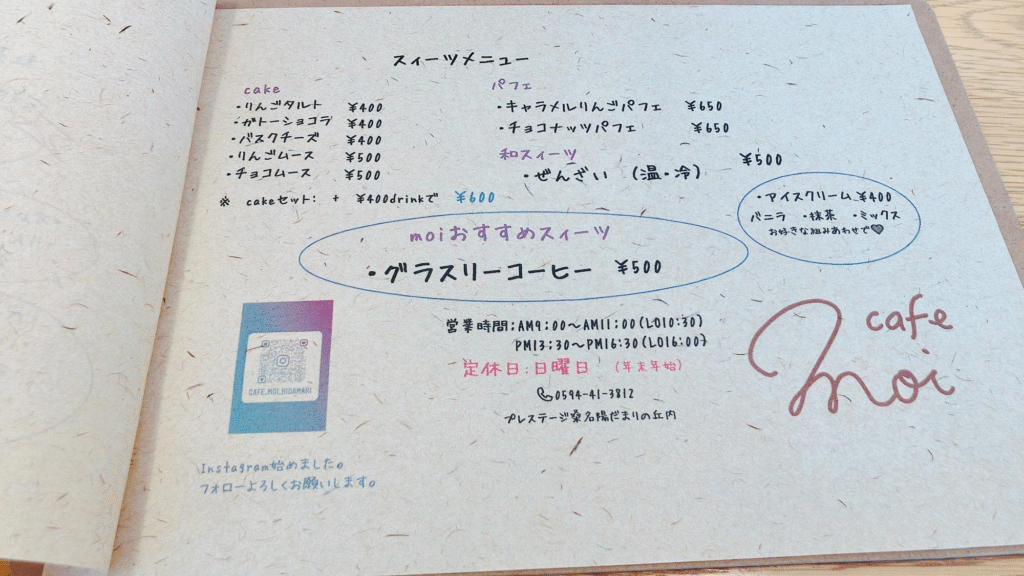 スィーツメニュー
cake
・りんごタルト ¥400
・ガトーショコラ ¥400
・バスクチーズ ¥400
・りんごムース ¥500
・チョコムース ¥500
※ cakeセット: + ¥400drinkで ¥600
パフェ
・キャラメルりんごパフェ ¥650
・チョコナッツパフェ ¥650
和スィーツ
・ぜんざい (温・冷) ¥500
・アイスクリーム ¥400
バニラ ・抹茶 ・ミックス
お好きな組みあわせで♥
moiおすすめスィーツ
・グラスリーコーヒー ¥500
営業時間:AM9:00〜AM11:00(LO10:30)
PM13:30〜PM16:30(LO16:00)
定休日:日曜日 (年末年始)
0594-41-3812
プレステージ桑名陽だまりの丘内
cafe
moi
CAFE.MOI.HIDAMARI
Instagram始めました。
フォローよろしくお願いします。